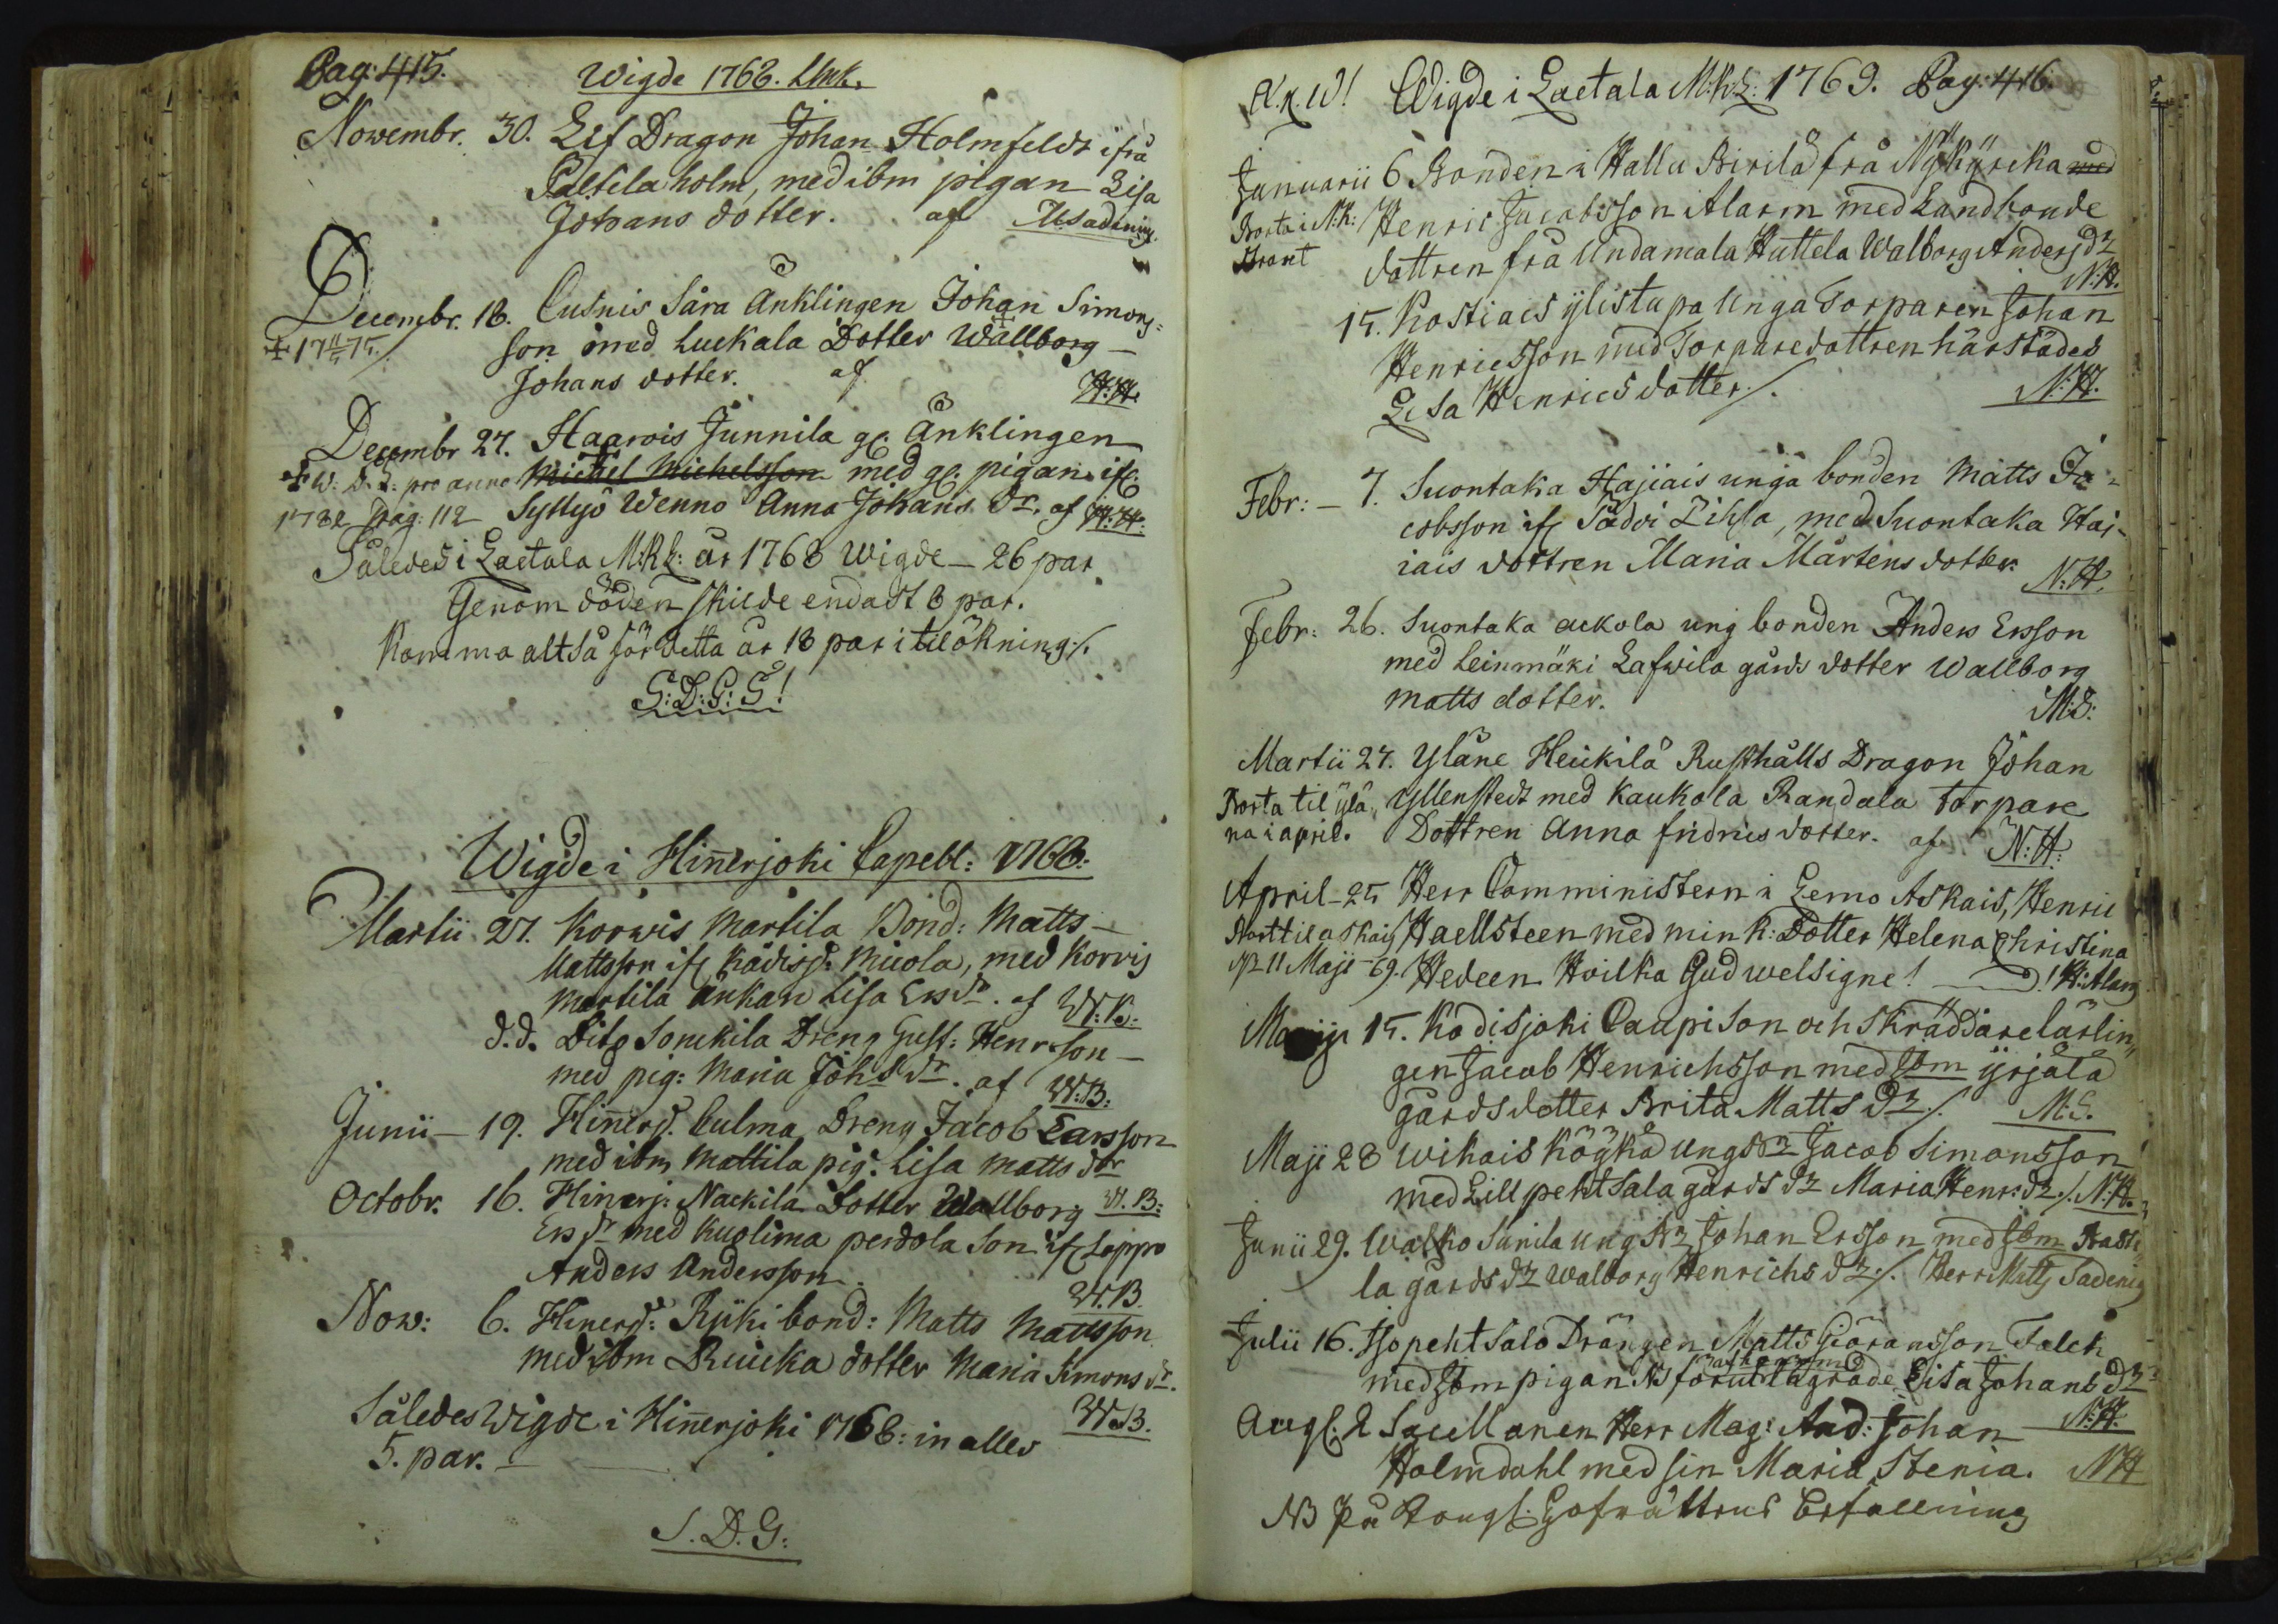 Pag: 415. Wigde 1768. LMK.
Novembr. 30. Lif Dragon Johan Holmfeldt ifrå
Paltila holm, med ibm pigan Lisa
Johans dotter. af M Sadenius.
Decembr. 18. Cusnis Sara Änklingen Johan Simons=
son med Luckala Dotter Wallborg
Johans dotter. af N:H.
Decembr 27. Haarois Junnila gl. Änklingen
Michel Michelsson med gl. pigan if
W. D. L: pro anno
1782 Pag: 112 Syllyö Wenno Anna Johans dr. af N:H:
Således i Laetala M:K: år 1768 Wigde 26 par
Genom döden skilde endast 8 par.
Komma altså för detta år 18 par i tilökning./.
S:D:G:S!
Wigde i Hinnerjoki Capell: 1768.
Martii 27. Korvis Martila Bond: Matts
Mattsson if Kådisj: Miola, med Korvis
Martila änkan Lisa Ersdr. af W:B:
d.d. Dito Sonckila Dreng Gust: Henr:son
med pig: Maria Johsdr. af W:B:
Junii 19. Hinerj. Culma Dreng Jacob Larsson
med ibm Mattila pig: Lisa Matts dr
Octobr. 16. Hinerj: Nackila Dotter Wallborg W.B:
Ersdr med Kuolima perdola son if Loppo
Anders Andersson W.B.
Nov: 6. Hinerj: Rijki bond: Matts Mattsson
med ibm Ruicka dotter Maria Simons dr.
W.B.
Således Wigde i Hinnerjoki 1768: in alles
5. par.
S.D.G:
Wigde i Laetala M:K: 1769. Pag: 416.
Januarii 6 Bonden i Hallu Birilä frå Nykyrcka med
Borta i N:K: Henric Jacobsson Alarm med Landbonde
dottren frå Undamala Huttela Walborg Andersdr
N:H.
15. Kostiais ylistupa Unga Torparen Johan
Henricsson med Torparedottren härstädes
Lisa Henricsdotter./. N:H.
Febr: 7. Suontaka Hajiais unga bonden Matts Ja=
cobsson if Sådoi Zihla, med Suontaka Haj-
iais dottren Maria Mårtens dotter. N:H.
Febr: 26. Suontaka ackola ung bonden Anders Ersson
med Leinmäki Lafwila gårds dotter Wallborg
Matts dotter. M:S:
Martii 27. Yläne Heickilä Rusthålls Dragon Johan
Borta til ylä= Yllenstedt med Kaukola Randala torpare
na i april. Dottren Anna Fridrics dotter. af N:H:
April 25 Herr Comministern i Lemo Askais, Henric
Bort til askais Haellsteen med min k: Dotter Helena Christina
11 Maji 69. Hedeen Hvilka Gud welsigne!
Maji 15. Kodisjoki Caapi Son och Skräddarelärlin,,
gen Jacob Henrichsson med Ibm yrjälä
gårdsdotter Brita Matts dr./. M:S.
Maji 28 Wihais Köykä Ung Jacob Simonsson
med Lill pehtsala gårds dr Maria Henr:dr./. N:H.
Junii 29. Walko Sunila ung Johan Ersson med Ibm Bast=
la gårds dr Walborg Henrichs dr./. Herr Matts Sadenius
Julii 16. Isopehtsalo Drängen Matts Giöransson Falck
med Ibm pigan NB förut lägrade Lisa Johans dr
af honom
N:H.
Augs: 2 Sacellanen Herr Mag: And: Johan
Holmdahl med sin Maria Stenia. NH
NB På Kongl: Hofrättens befallning